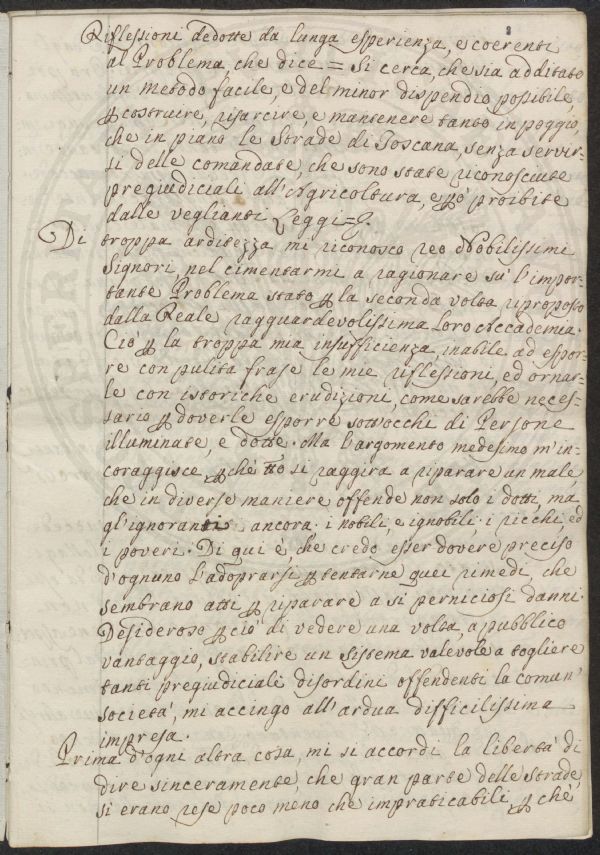 Riflessioni dedotte da lunga esperienza, e coerenti
al Problema, che dice = Si cerca, che sia additato
un metodo facile, e del minor dispendio possibile,
ꝑ costruire, risarcire, e mantenere tanto in poggio,
che in piano le Strade di Toscana, senza servir-
si delle comandate, che sono state riconosciute
pregiudiciali all'Agricoltura, e ꝑò proibite
dalle veglianti Leggi =
Di troppa arditezza mi riconosco reo Nobilissimi
Signori, nel cimentarmi a ragionare su' l'impor-
tante Problema stato ꝑ la seconda volta riproposto
dalla Reale ragguardevolissima loro Accademia.
Ciò ꝑ la troppa mia insufficienza, inabile ad espor-
re con pulita frase le mie riflessioni, ed ornar-
le con istoriche erudizioni, come sarebbe neces-
sario ꝑ doverle esporre sottocchi di Persone
illuminate, e dotte. Ma l'argomento medesimo m'in-
coraggisce, ꝑchè tto si raggira a riparare un male,
che in diverse maniere offende non solo i dotti, ma
gl'ignoranti ancora. i nobili, e ignobili, i ricchi, ed
i poveri. Di qui è, che credo esser dovere preciso
d'ognuno l'adoprarsi ꝑ tentarne quei rimedi, che
sembrano atti ꝑ riparare a si perniciosi danni.
Desideroso ꝑciò di vedere una volta, a pubblico
vantaggio, stabilire un sistema valevole a togliere
tanti pregiudiciali disordini offendenti la comun'
società, mi accingo all'ardua difficilissima
impresa.
Prima d'ogni altra cosa, mi si accordi la libertà di
dire sinceramente, che gran parte delle strade,
si erano rese poco meno che impraticabili, ꝑchè